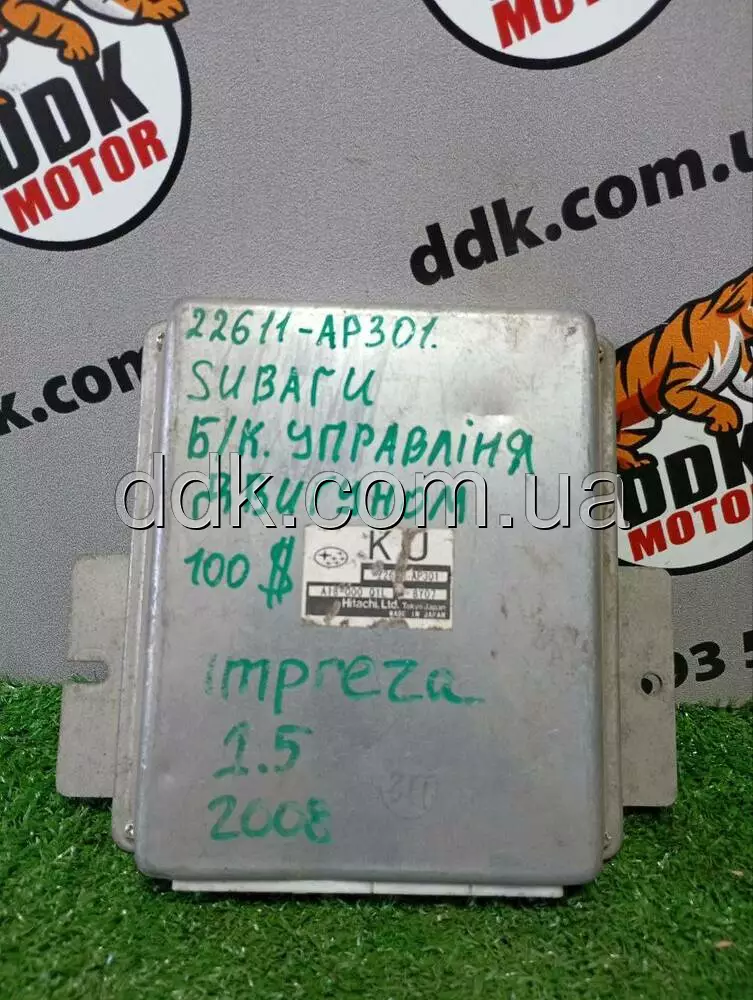 DDK
MOTOR
ddk.com.ua
ddk.com
DDK
MOTOR
93 5
MOTOR
22611-AP301.
SUBARU
Б/К. УПРАВЛІНЯ
ДВИГУНОМ
ddk.com.ua
100 $
KJ
AP301
A18-000 01L BY07
Hitachi, Ltd. Tokyo Japan
MADE IN JAPAN
impreza
1.5
2008